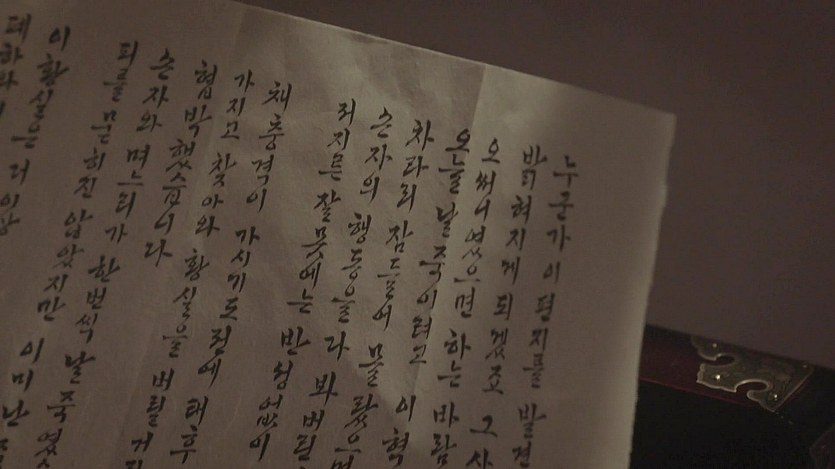 누군가 이 편지를 발견
밝혀지게 되겠죠 그 사
오써니였으면 하는 바람
오늘 날 죽이려고 이 혁
차라리 잠들어 몰랐으면
손자의 행동을 다 봐버린
저지른 잘못에는 반성 없이
채 충격이 가시기도 전에 태후
가지고 찾아와 황실을 버릴 거
협박했습니다
손자와 며느리가 한번씩 날 죽였
피를 묻히진 않았지만 이미 난
이 황실은 더 이상
폐하와